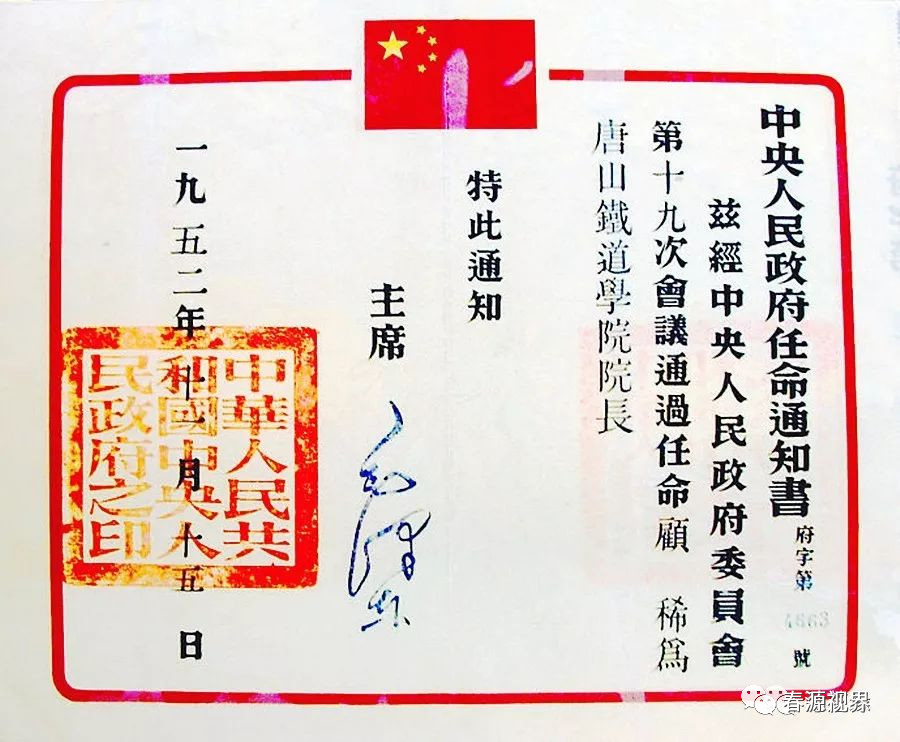 中央人民政府任命通知書
府字第4663號
茲經中央人民政府委員會
第十九次會議通過任命顧 稀爲
唐山鐵道學院院長
特此通知
主席 毛澤東
一九五二年十一月十五日
中華人民共
和國中央人
民政府之印
春源视界